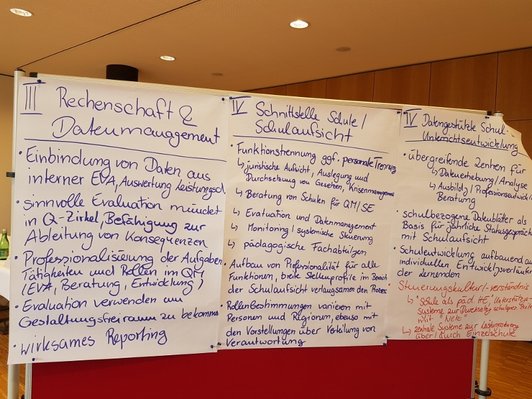 III Rechenschaft &
Datenmanagement
• Einbindung von Daten aus
interner EVA, Auswertung Leistungssch
• sinnvolle Evaluation mündet
in Q-Zirkel, Befähigung zur
Ableitung von Konsequenzen
• Professionalisierung der Aufgaben
Tätigkeiten und Rollen im QM
(EVA, Beratung, Entwicklung)
• Evaluation verwenden um
Gestaltungsfreiraum zu bekommen
• wirksames Reporting
IV Schnittstelle Schule /
Schulaufsicht
• Funktionstrennung ggf. personale Trennung
↳ juristische Aufsicht, Auslegung und
Durchsetzung von Gesetzen, Krisenmanagement
↳ Beratung von Schulen für QM/SE
↳ Evaluation und Datenmanagement
↳ Monitoring / systemische Steuerung
↳ pädagogische Fachabteilungen
• Aufbau von Professionalität für alle
Funktionen, breite Stellenprofile im Bereich
der Schulaufsicht verlangsamen den Prozess
• Rollenbestimmungen variieren mit
Personen und Regionen, ebenso mit
den Vorstellungen über Verteilung von
Verantwortung
IV Datengestützte Schul-
Unterrichtsentwicklung
• übergreifende Zentren für
↳ Datenerhebung / Analyse
↳ Ausbildg / Professionsentwickl
Beratung
• schulbezogene Datenblätter als
Basis für jährliche Statusgespräche
mit Schulaufsicht
• Schulentwicklung aufbauend a
individuellen Entwicklungsverläu
der Lernenden
Steuerungskultur/-verständnis
↳ Schule als päd. HE, Unterstütz
Systeme zur
mit
↳ zentrale Systeme zur
über / durch Einzelschule